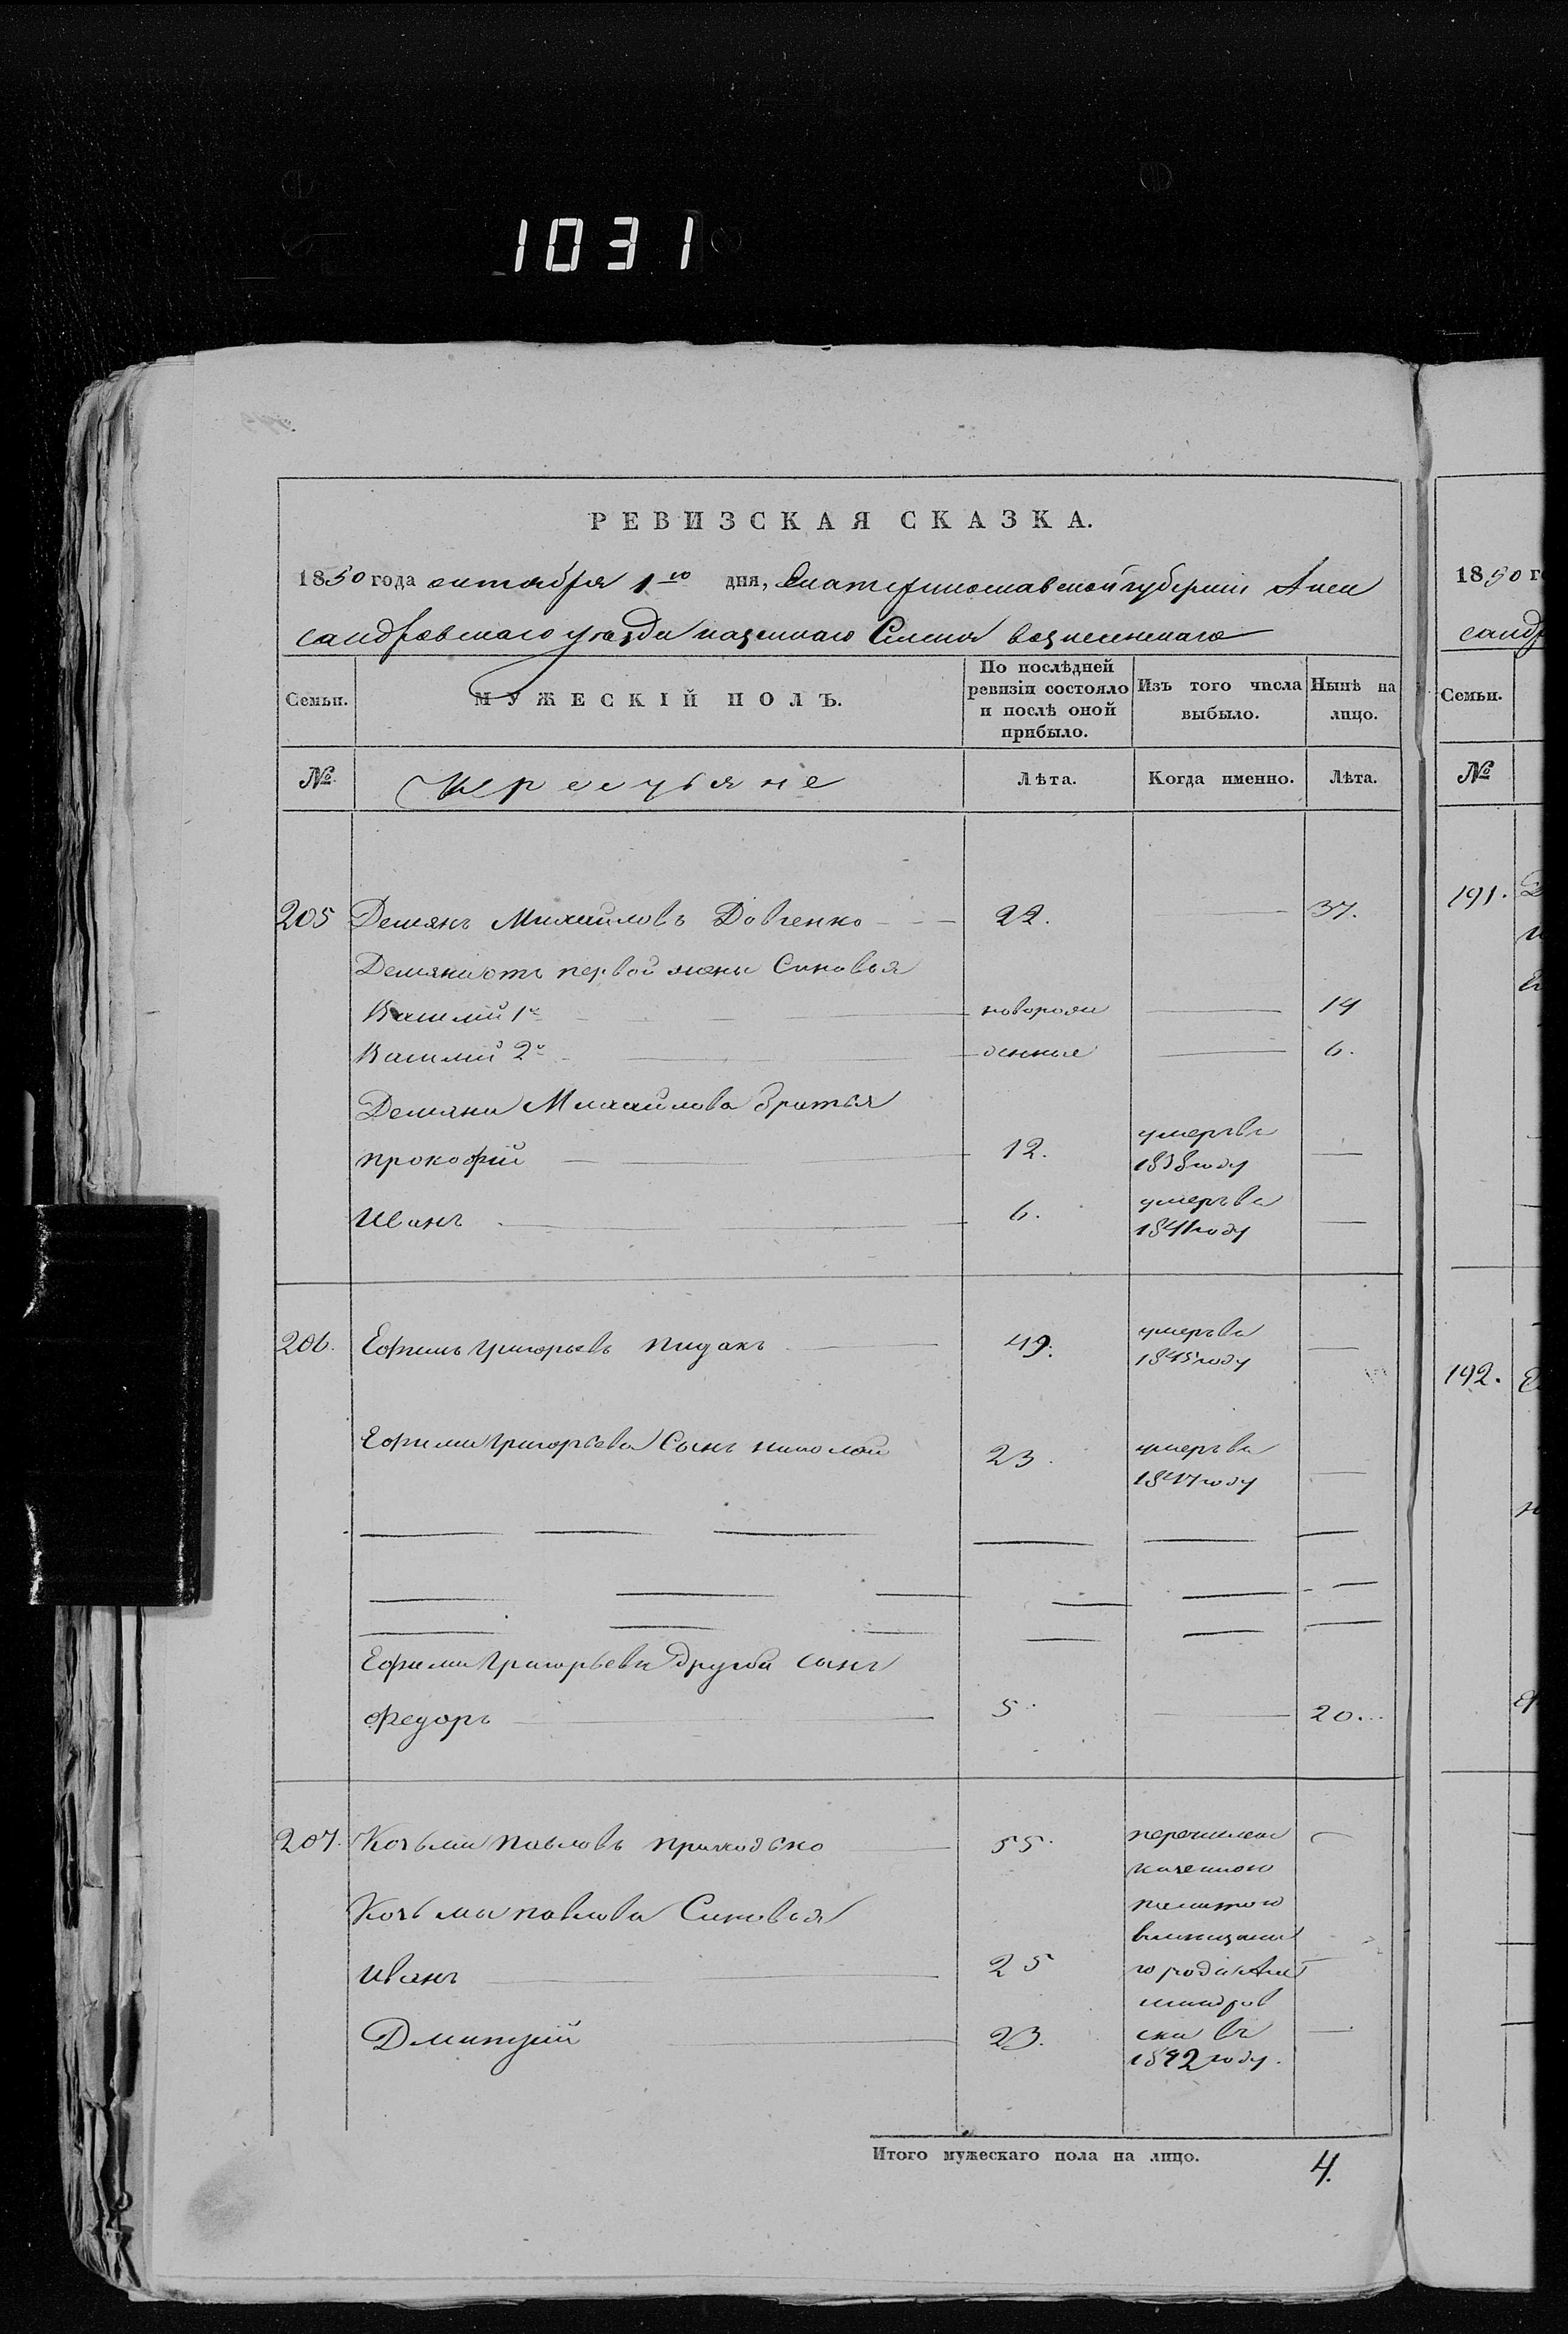 1031
РЕВИЗСКАЯ СКАЗКА.
1850 года октября 1го дня, Екатеринославской губернии Алек
сандровскаго уезда казеннаго Селения вознесенскаго
Семьи. МУЖЕСКІЙ ПОЛЪ. По послѣдней ревизіи состояло и послѣ оной прибыло. Изъ того числа выбыло. Нынѣ на лицо.
№ крестьяне Лѣта. Когда именно. Лѣта.
205 Демянъ Михайловъ Довгенко 22. 37.
Демяна отъ первой жены Синовья
Василий 1й новорож 14
Василий 2й денные 6.
Демяна Михайлова братья
прокофий 12. умеръ въ 1838 году
Иванъ 6. умеръ въ 1841 году
206. Ефимъ григорьевъ пидакъ 49. умеръ въ 1845 году
Ефима григорьева Сынъ николай 23. умеръ въ 1847 году
Ефима григорьева другой сынъ
Федоръ 5. 20.
207. Козьма павловъ приходько 55. перечислен
казенною
Козьмы павлова Синовья палатою
в мещане
Иванъ 25 города Алек
сандров
Дмитрий 23. ска въ
1842 году.
Итого мужескаго пола на лицо. 4.
1850 го
сандр
Семьи.
№
191.
192.